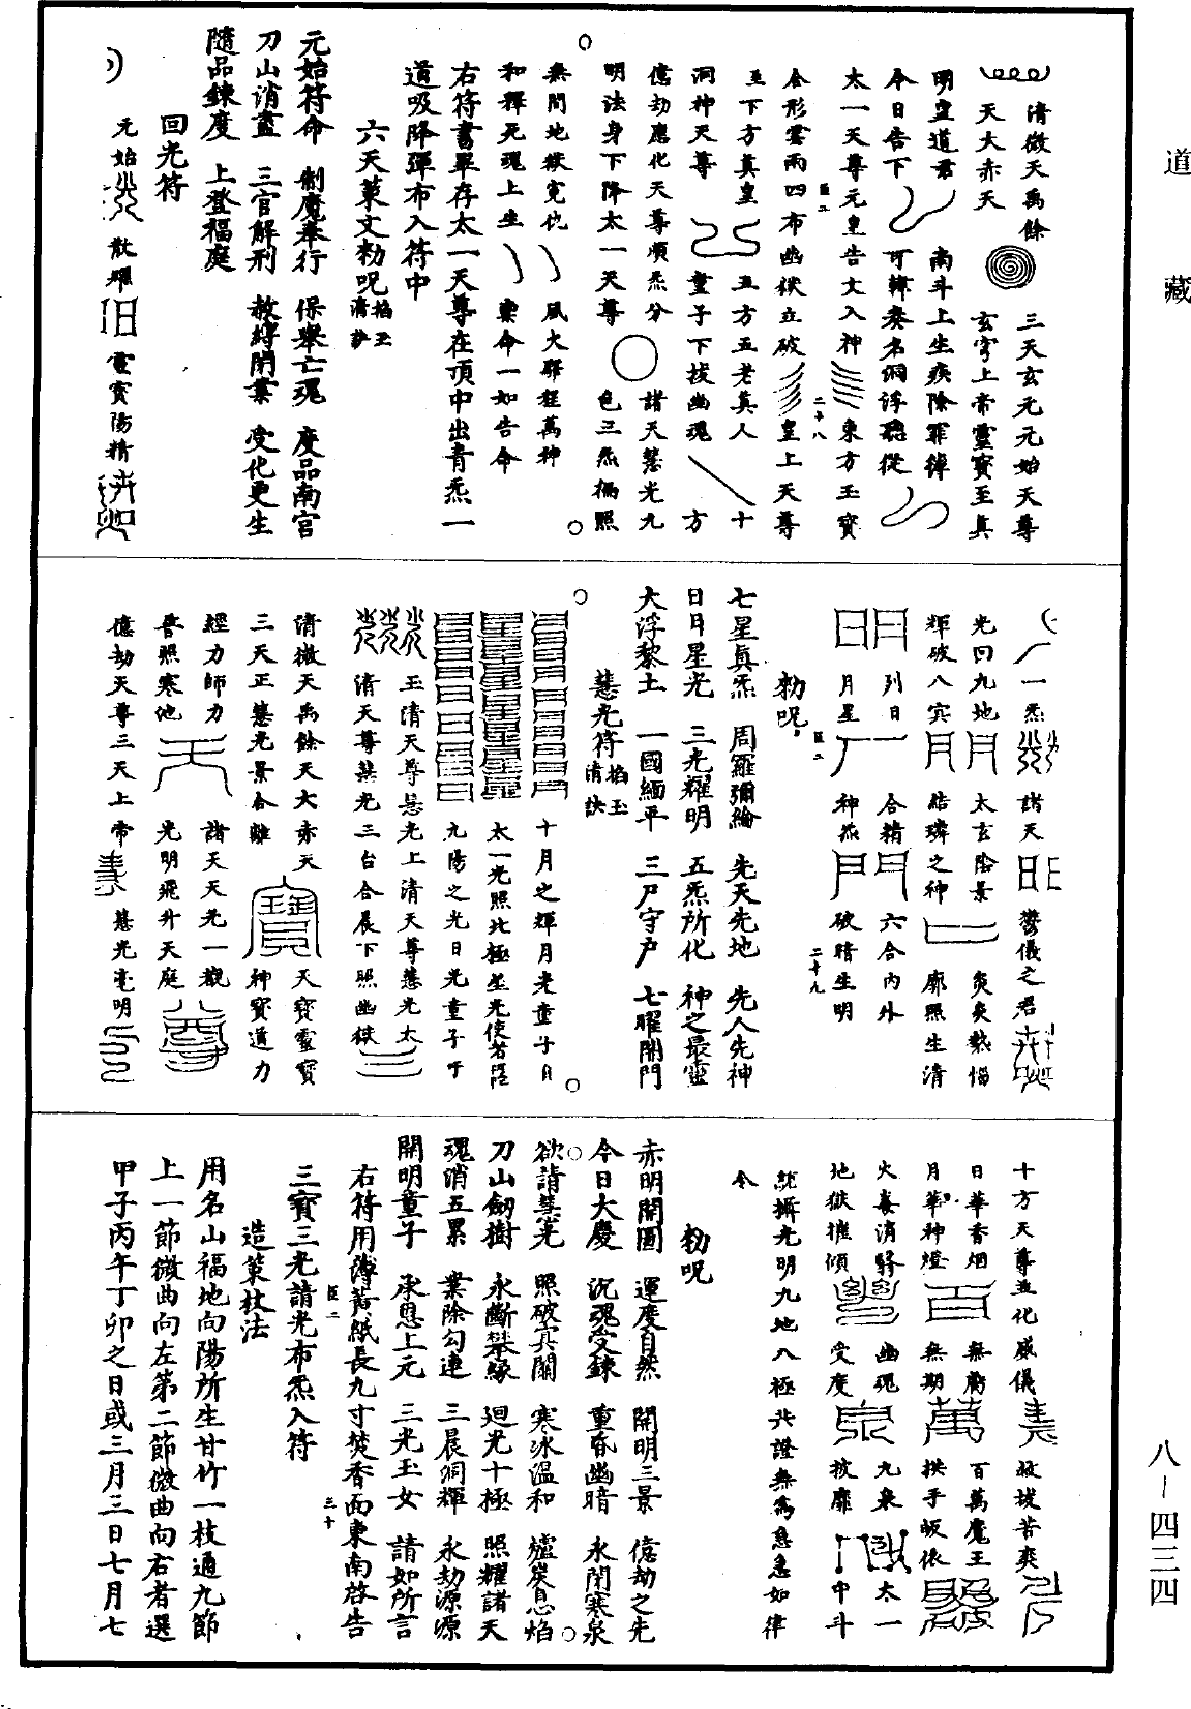 道藏
八—四三四
清微天禹餘
天大赤天
三天玄元元始天尊
玄穹上帝靈寶至真
明皇道君
今日告下
南斗上生疾除罪簿
可韓奏名洞浮聽從
太一天尊元皇告文入神
東方玉寶
合形雲雨四布幽獄立破
皇上天尊
二十八
至下方真皇
洞神天尊
五方五老真人
十
童子下拔幽魂
方
億劫應化天尊順炁分
明法身下降太一天尊
諸天慧光九
色三炁徧照
無間地獄冤仇
和釋死魂上生
風火驛程萬神
稟命一如告命
右符書畢存太一天尊在頂中出青炁一
道吸降彈布入符中
六天策文勑呪
元始符命　制魔奉行　保舉亡魂　度品南宮
刀山消盡　三官解刑　赦縛閉業　受化更生
隨品鍊度　上登福庭
回光符
元始
散耀
靈寶陽精
一炁
諸天
鬱儀之君
光回九地
輝破八㝠
太玄陰景
結璘之神
炎炎熱惱
廓照生清
列日
月星
合精
神炁
六合內外
破暗生明
二十九
勑呪
七星真炁　周羅彌綸　先天先地　先人先神
日月星光　三光耀明　五炁所化　神之最靈
大浮黎土　一國緬平　三尸守戶　七曜開門
慧光符
掐玉清訣
十月之輝月光童子日
太一光照北極星光使者臣
九陽之光日光童子
玉清天尊慧光上清天尊慧光太
清天尊慧光三台合晨下照幽獄
清微天禹餘天大赤天
三天正慧光景合離
天寶靈寶
神寶道力
經力師力
普照寒池
諸天天光一觀
光明飛升天庭
億劫天尊三天上帝
慧光毫明
十方天尊並化威儀
救拔苦爽
日華香烟
月華神燈
無窮
無期
百萬魔王
拱手皈依
火毒消釋
地獄摧傾
幽魂
受度
九泉
披靡
太一
中斗
統攝光明九地八極共證無為急急如律
令
勑呪
赤明開圖　運度自然　開明三景　億劫之先
今日大慶　沉魂受鍊　重昏幽暗　永閉寒泉
欲請慧光　照破㝠關　寒冰溫和　爐炭息焰
刀山劒樹　永斷攀緣　廻光十極　照耀諸天
魂消五累　業除勾連　三晨洞輝　永劫源源
開明童子　承恩上元　三光玉女　請如所言
右符用薄黃紙長九寸焚香面東南啓告
三寶三光請光布炁入符
三十
造策杖法
用名山福地向陽所生甘竹一枝通九節
上一節微曲向左第二節微曲向右者選
甲子丙午丁卯之日或三月三日七月七